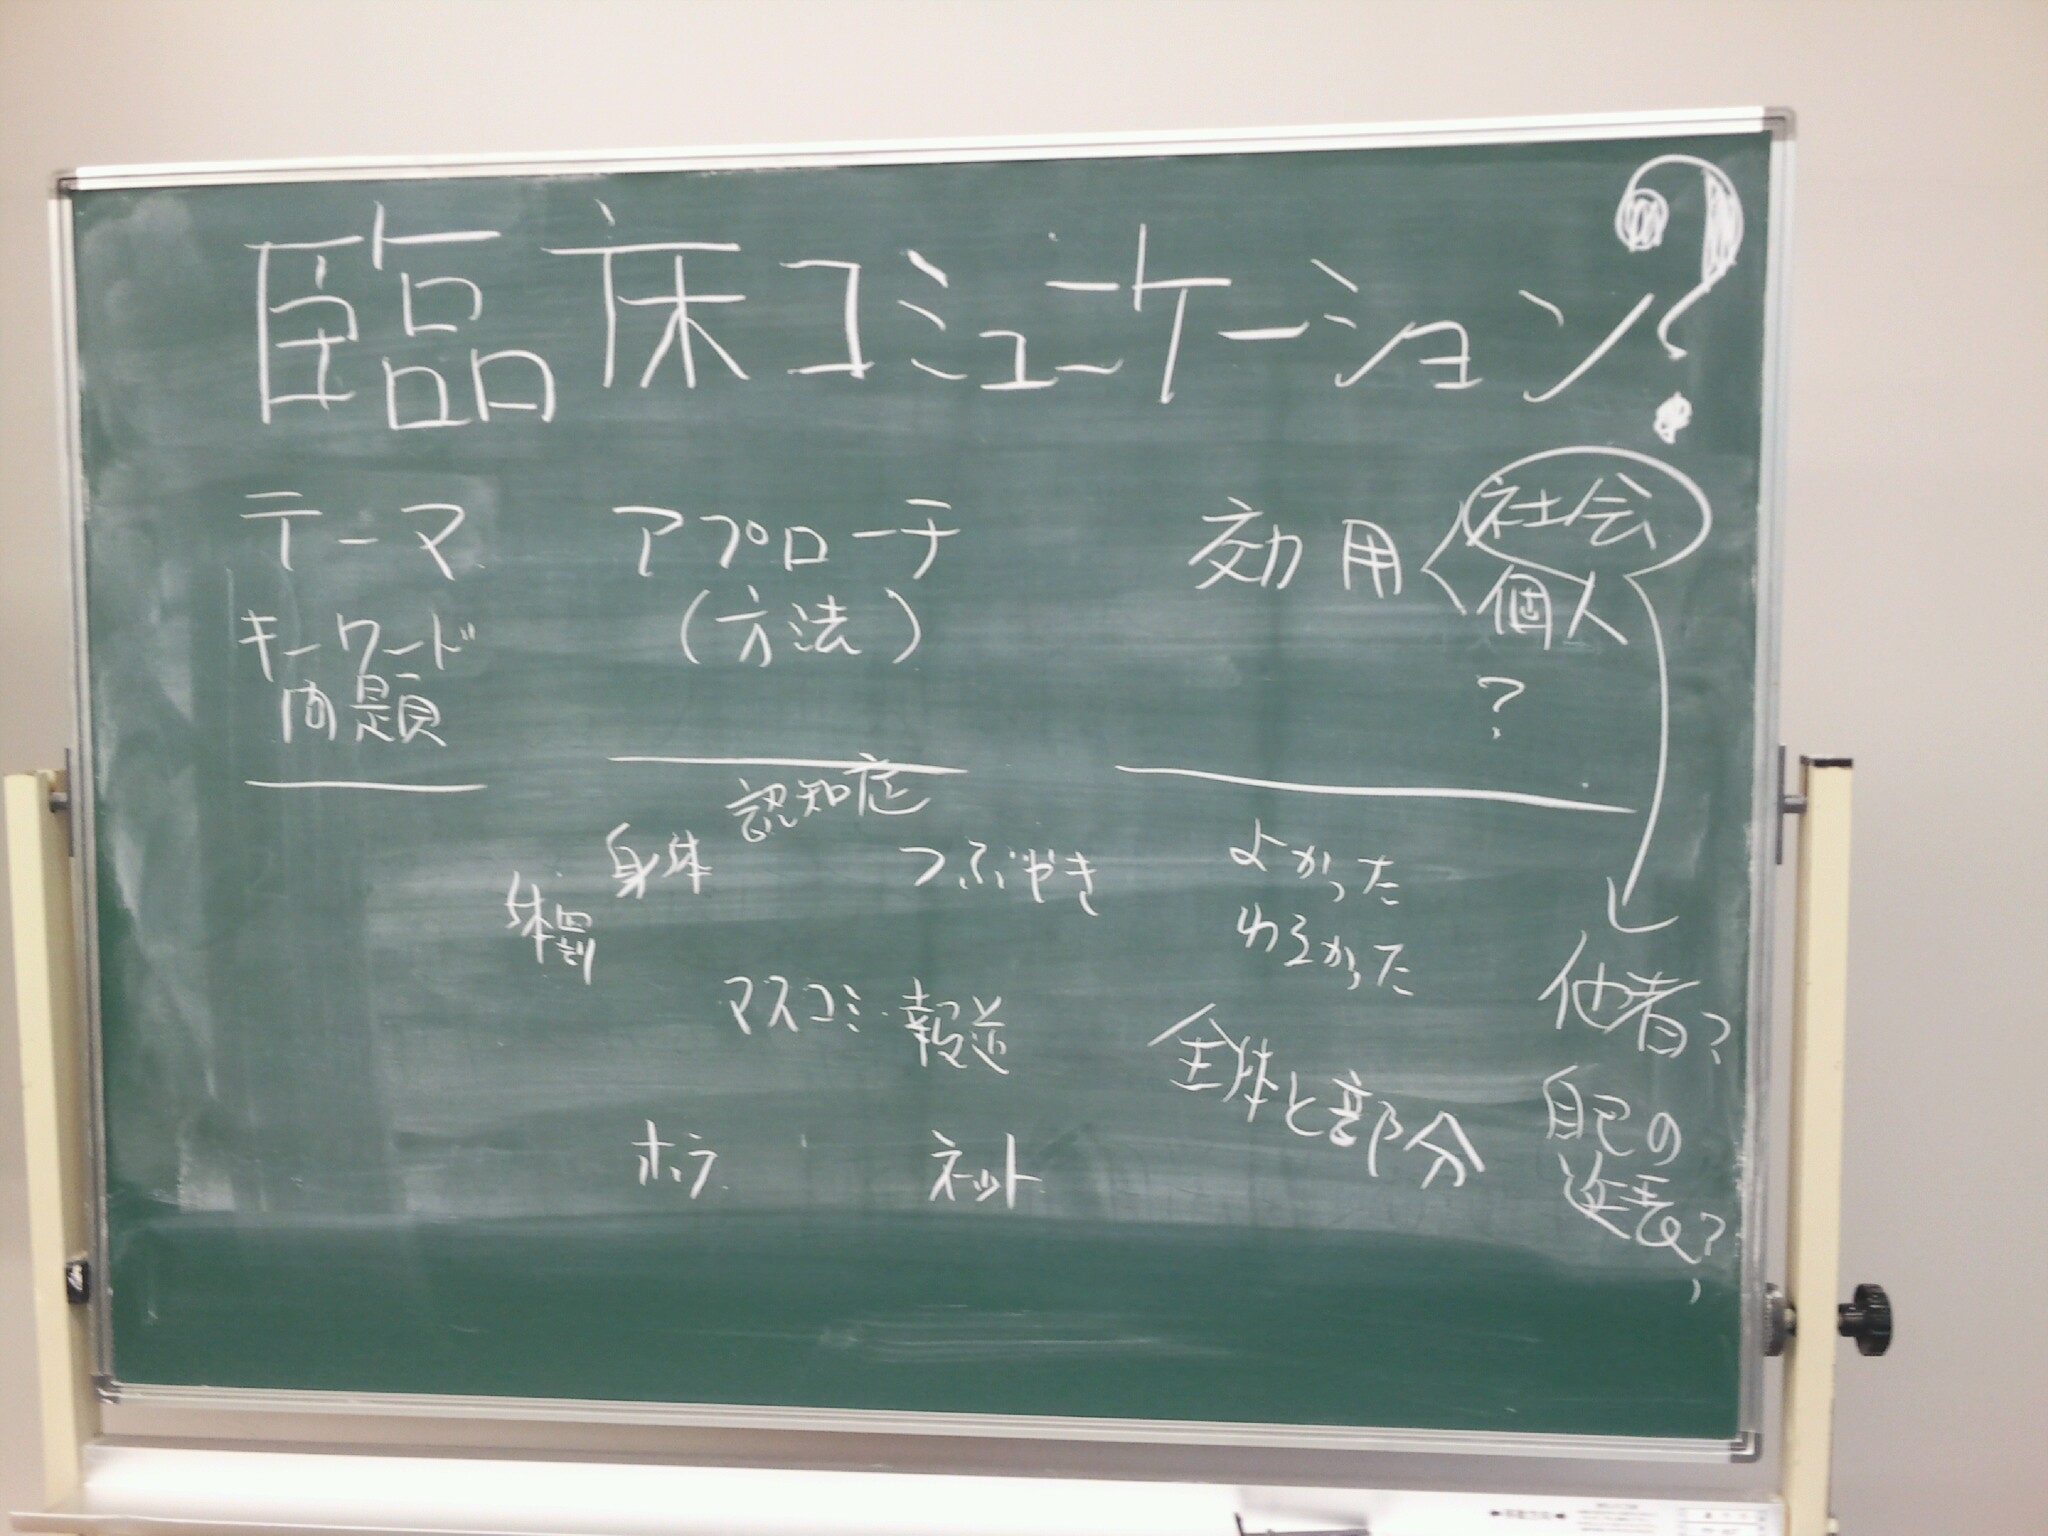 臨床コミュニケーション?
テーマ
キーワード
問題
アプローチ
(方法)
効用
社会
個人
?
認知症
身体
つぶやき
体罰
マスコミ・報道
ホラ
ネット
よかった
わるかった
全体と部分
他者?
自己の
?